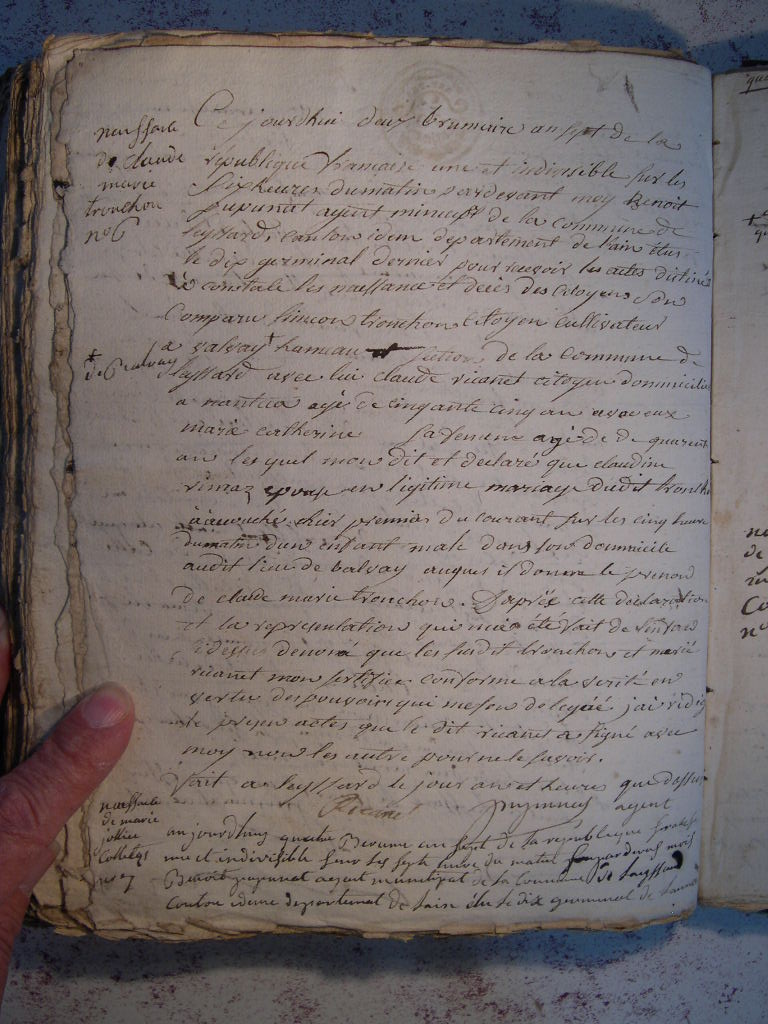 naissance
de claude
marie
tronchon
n° 6
Ce jourdhui deux brumaire an sept de la
republique francaise une et indivisible sur les
six heures du matin pardevant moy Benoit
pupunat agent municip de la commune de
leyssard, canton idem departement de lain elus
le dix germinal dernier pour recevoir les actes distiné
a constate les naissance et deces des citoyens du
Comparu simeon tronchon citoyen cultivateur
a valvay hameau et section de la commune de
leyssard avec lui claude ricanet citoyen dommicilie
a nantua agé de cinquante cinq an avec eux
marie catherine savenune agé de de quarente
an lesquel mon dit et declaré que claudine
epouse en ligitime mariage dudit tronchon
a acouché hier premier du courant sur les cinq heure
dumatin dun enfant male dans son dommicile
audit lieu de balvay auques il donne le prenon
de claude marie tronchon. Daprés cette declaration
et la representation qui ma été fait de lenfan
denomé que les susdit tronchon et marie
ricanet mon sertifiée conforme a la verité en
vertu des pouvoir qui me son delegéé j'ai redigé
le presen actes que le dit ricanet a signé avec
moy non les autre pour ne le savoir.
Fait a leyssard le jour an et heures que dessus
agent
naissance
de marie
joseph
Colletys
n° 7
aujourdhuy quatre Brume an sept de la republique franse
une et indivisible sur les sept heure du matin pardevant moi
Benoit pupunat agent municipal de la Commune de Leyssard
Canton idem departement de lain elu le dix germinal de lanne